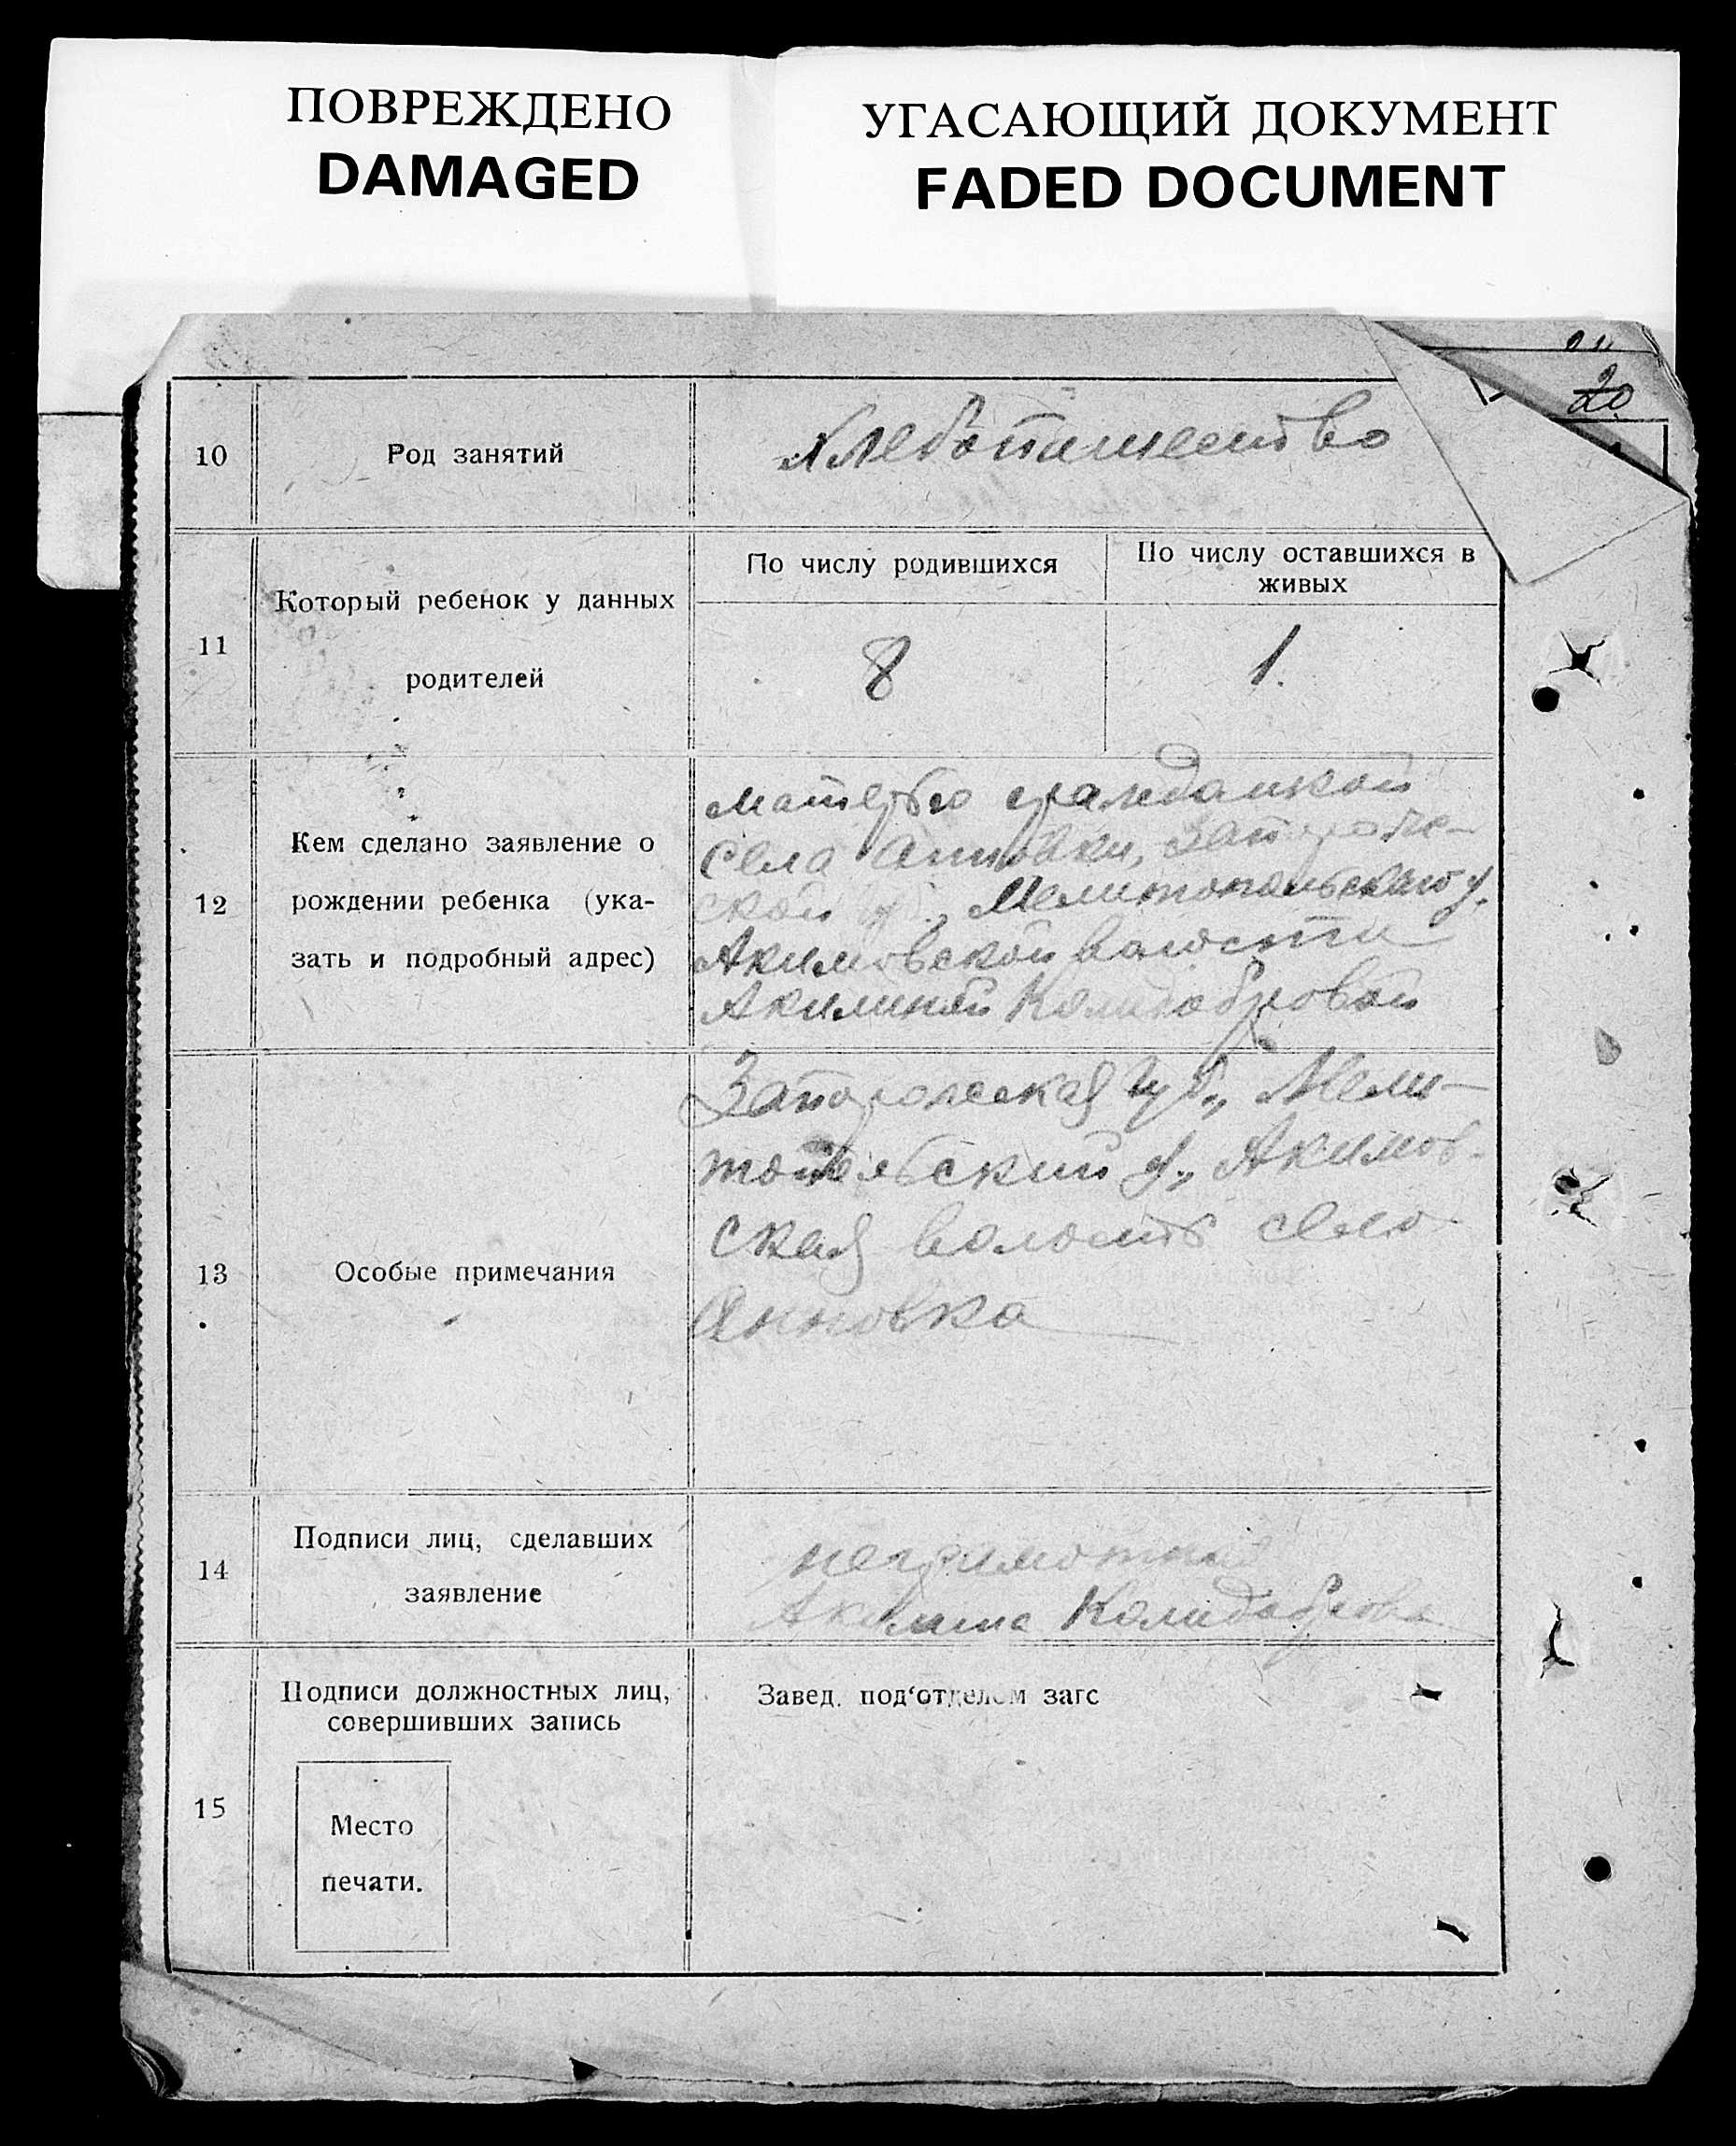 ПОВРЕЖДЕНО
DAMAGED
УГАСАЮЩИЙ ДОКУМЕНТ
FADED DOCUMENT
20
10
Род занятий
Хлебопашество
11
Который ребенок у данных
родителей
По числу родившихся
8
По числу оставшихся в
живых
1.
12
Кем сделано заявление о
рождении ребенка (ука-
зать и подробный адрес)
матерью гражданкой
села Анновки, Запорож-
ской губ., Мелитопольского у.
Акимовской волости
Акилиной
13
Особые примечания
Запорожская губ., Мели-
топольский у., Акимов-
ская волость село
Анновка
14
Подписи лиц, сделавших
заявление
неграмотная
Акилина
15
Подписи должностных лиц,
совершивших запись
Место
печати.
Завед. под'отделом загс